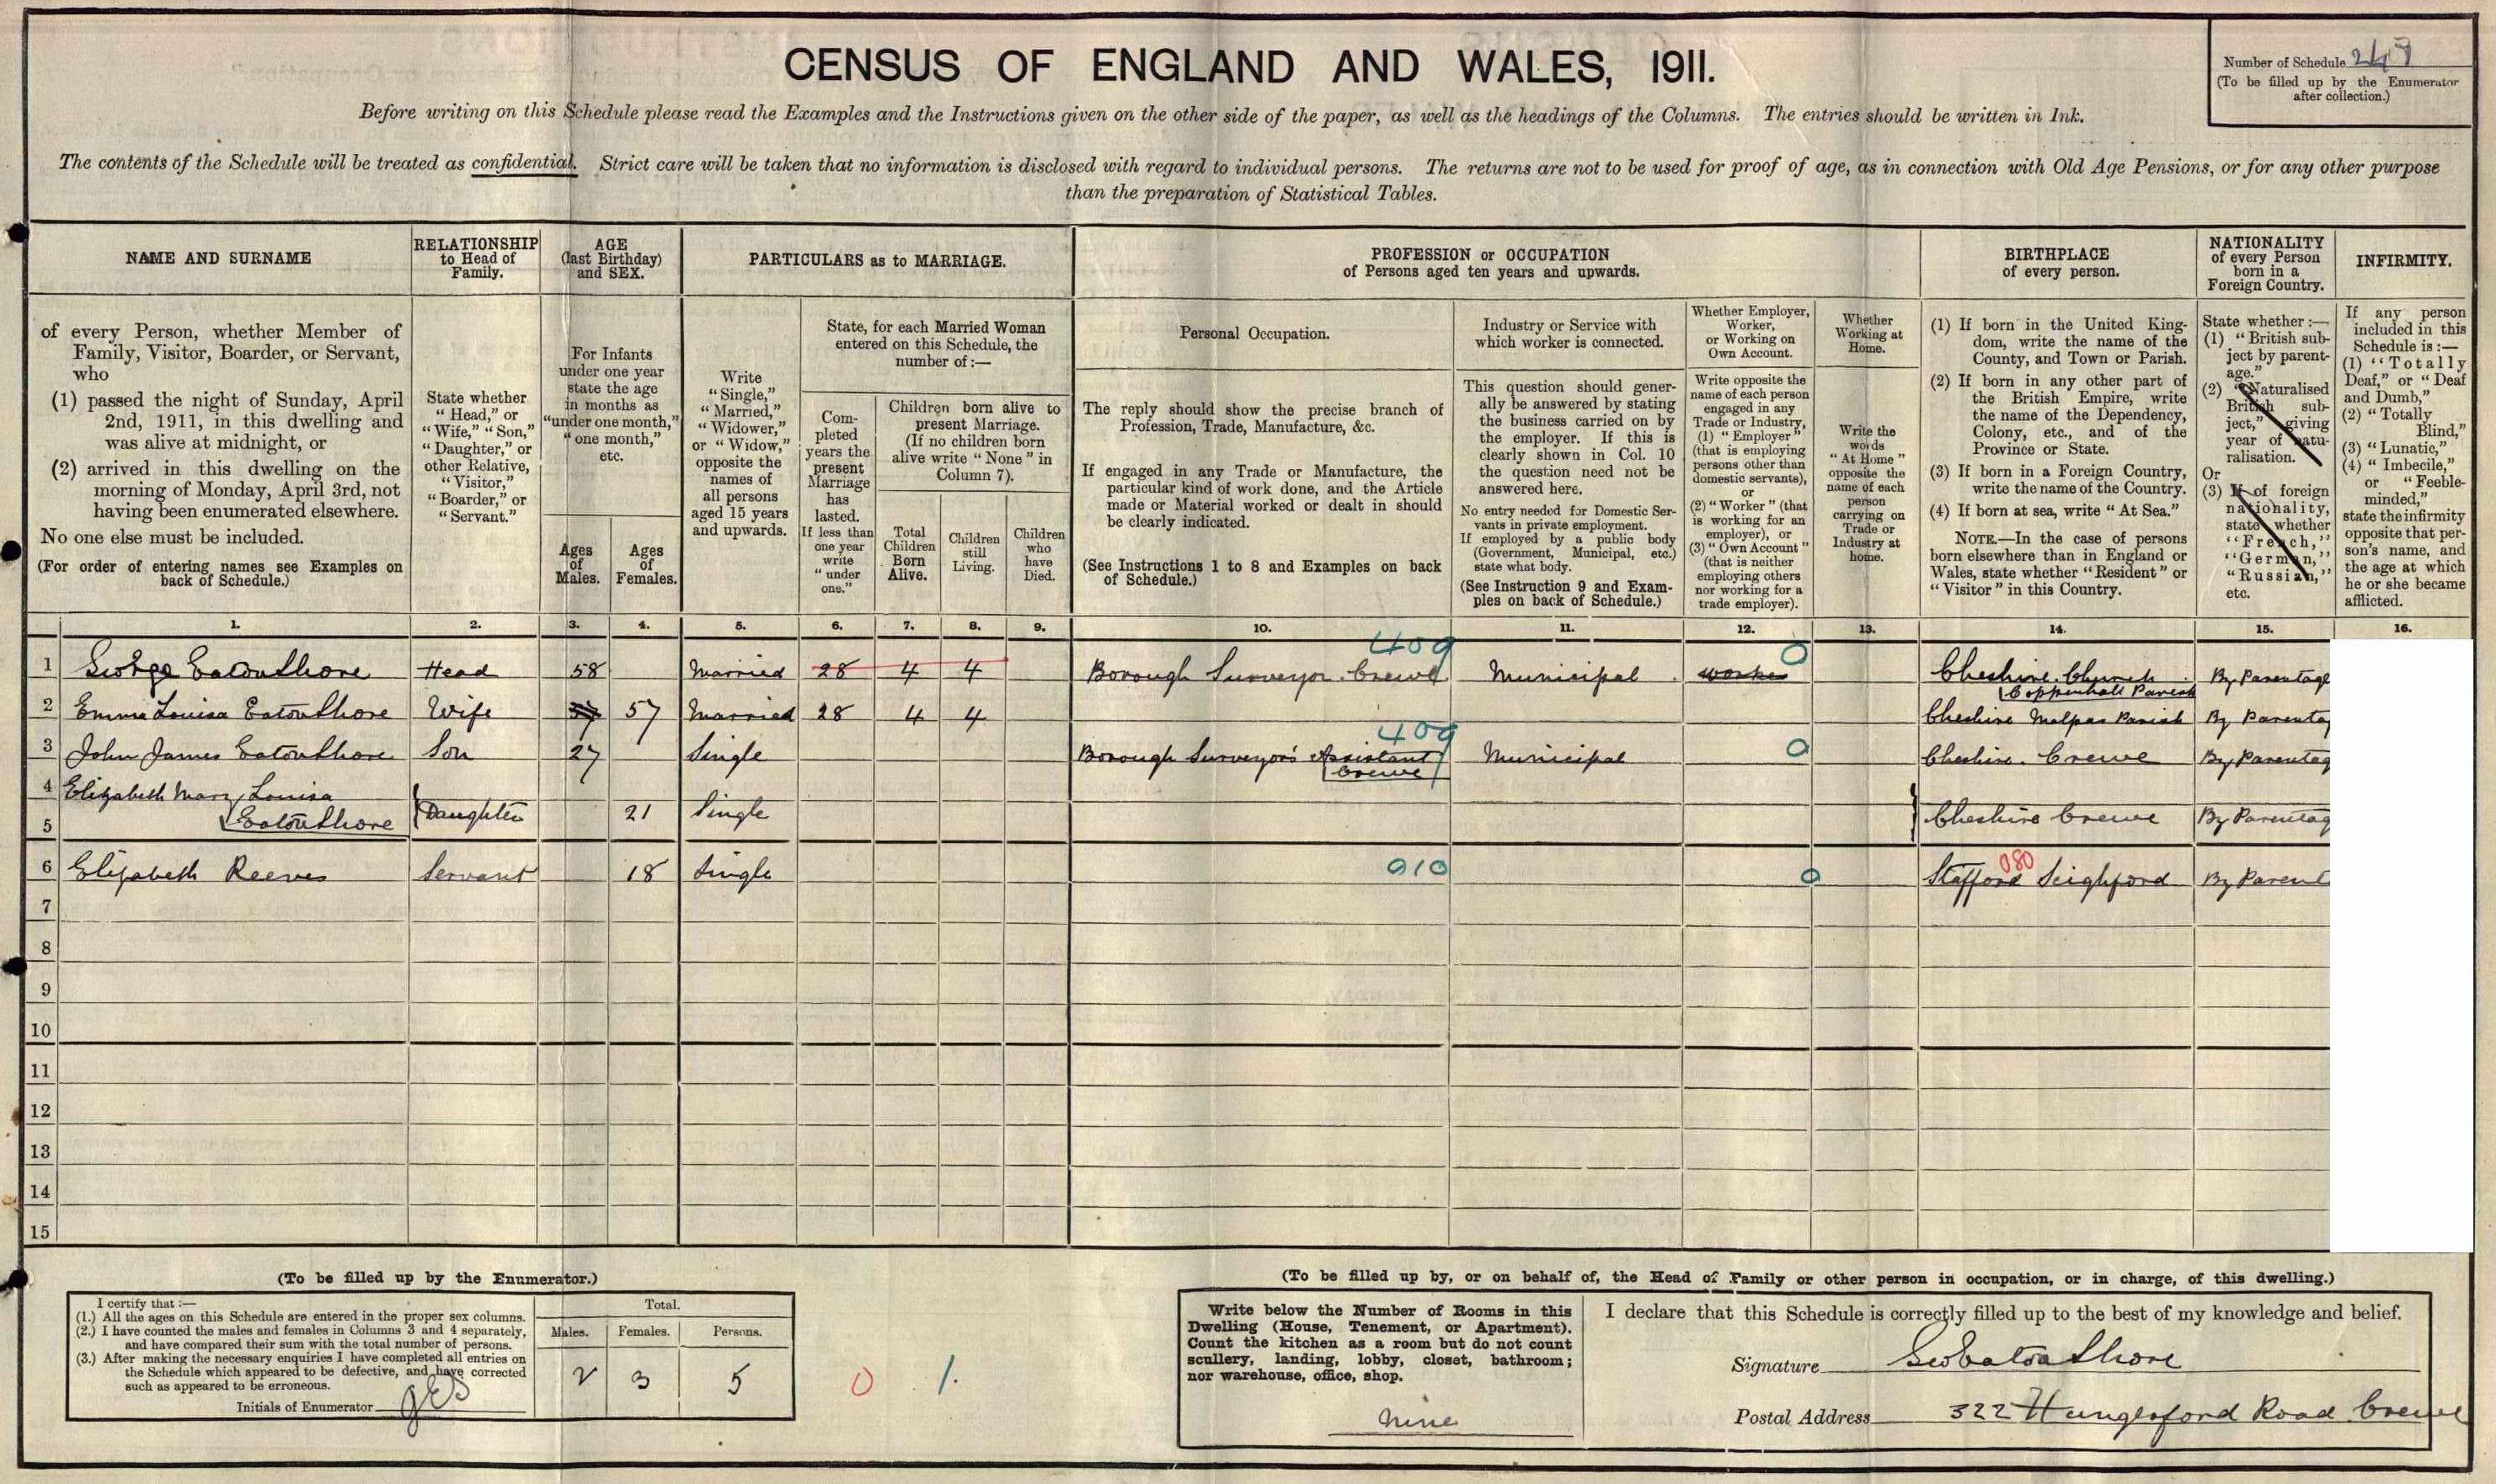 CENSUS OF ENGLAND AND WALES, 1911.
Number of Schedule
(To be filled up by the Enumerator
after collection.)
Before writing on this Schedule please read the Examples and the Instructions given on the other side of the paper, as well as the headings of the Columns. The entries should be written in Ink.
The contents of the Schedule will be treated as confidential. Strict care will be taken that no information is disclosed with regard to individual persons. The returns are not to be used for proof of age, as in connection with Old Age Pensions, or for any other purpose
than the preparation of Statistical Tables.
NAME AND SURNAME
of every Person, whether Member of
Family, Visitor, Boarder, or Servant,
who
(1) passed the night of Sunday, April
2nd, 1911, in this dwelling and
was alive at midnight, or
(2) arrived in this dwelling on the
morning of Monday, April 3rd, not
having been enumerated elsewhere.
No one else must be included.
(For order of entering names see Examples on
back of Schedule.)
RELATIONSHIP
to Head of
Family.
State whether
"Head," or
"Wife," "Son,"
"Daughter," or
other Relative,
"Visitor,"
"Boarder," or
"Servant."
AGE
(last Birthday)
and SEX.
For Infants
under one year
state the age
in months as
"under one month,"
"one month,"
etc.
Ages
of
Males.
Ages
of
Females.
PARTICULARS as to MARRIAGE.
Write
"Single,"
"Married,"
"Widower,"
or "Widow,"
opposite the
names of
all persons
aged 15 years
and upwards.
State, for each Married Woman
entered on this Schedule, the
number of:—
Com-
pleted
years the
present
Marriage
has
lasted.
If less than
one year
write
"under
one."
Children born alive to
present Marriage.
(If no children born
alive write "None" in
Column 7).
Total
Children
Born
Alive.
Children
still
Living.
Children
who
have
Died.
PROFESSION or OCCUPATION
of Persons aged ten years and upwards.
Personal Occupation.
The reply should show the precise branch of
Profession, Trade, Manufacture, &c.
If engaged in any Trade or Manufacture, the
particular kind of work done, and the Article
made or Material worked or dealt in should
be clearly indicated.
(See Instructions 1 to 8 and Examples on back
of Schedule.)
Industry or Service with
which worker is connected.
This question should gener-
ally be answered by stating
the business carried on by
the employer. If this is
clearly shown in Col. 10
the question need not be
answered here.
No entry needed for Domestic Ser-
vants in private employment.
If employed by a public body
(Government, Municipal, etc.)
state what body.
(See Instruction 9 and Exam-
ples on back of Schedule.)
Whether Employer,
Worker,
or Working on
Own Account.
Write opposite the
name of each person
engaged in any
Trade or Industry,
(1) "Employer"
(that is employing
persons other than
domestic servants),
or
(2) "Worker" (that
is working for an
employer), or
(3) "Own Account"
(that is neither
employing others
nor working for a
trade employer).
Whether
Working at
Home.
Write the
words
"At Home"
opposite the
name of each
person
carrying on
Trade or
Industry at
home.
BIRTHPLACE
of every person.
(1) If born in the United King-
dom, write the name of the
County, and Town or Parish.
(2) If born in any other part of
the British Empire, write
the name of the Dependency,
Colony, etc., and of the
Province or State.
(3) If born in a Foreign Country,
write the name of the Country.
(4) If born at sea, write "At Sea."
NOTE.—In the case of persons
born elsewhere than in England or
Wales, state whether "Resident" or
"Visitor" in this Country.
NATIONALITY
of every Person
born in a
Foreign Country.
State whether:—
(1) "British sub-
ject by parent-
age."
(2) "Naturalised
British sub-
ject," giving
year of natu-
ralisation.
Or
(3) If of foreign
nationality,
state whether
"French,"
"German,"
"Russian,"
etc.
INFIRMITY.
If any person
included in this
Schedule is:—
(1) "Totally
Deaf," or "Deaf
and Dumb,"
(2) "Totally
Blind,"
(3) "Lunatic,"
(4) "Imbecile,"
or "Feeble-
minded,"
state the infirmity
opposite that per-
son's name, and
the age at which
he or she became
afflicted.
1. 2. 3. 4. 5. 6. 7. 8. 9. 10. 11. 12. 13. 14. 15. 16.
409
1 George Eaton Shore Head 58 Married 28 4 4 Borough Surveyor Crewe Municipal worker 0 Cheshire. Church By Parentage
Coppenhall Parish
2 Emma Louisa Eaton Shore Wife 57 57 Married 28 4 4 Cheshire Malpas Parish By Parentag
409
3 John James Eaton Shore Son 27 Single Borough Surveyor's Assistant Municipal 0 Cheshire. Crewe By Parentag
Crewe
4 Elizabeth Mary Louisa
5 Eaton Shore Daughter 21 Single Cheshire Crewe By Parentag
6 Elizabeth Reeves Servant 18 Single 910 0 Stafford 080 Seighford By Parent
7
8
9
10
11
12
13
14
15
(To be filled up by the Enumerator.)
I certify that:—
(1.) All the ages on this Schedule are entered in the proper sex columns.
(2.) I have counted the males and females in Columns 3 and 4 separately,
and have compared their sum with the total number of persons.
(3.) After making the necessary enquiries I have completed all entries on
the Schedule which appeared to be defective, and have corrected
such as appeared to be erroneous.
Initials of Enumerator
Total.
Males. Females. Persons.
2 3 5
0 1.
(To be filled up by, or on behalf of, the Head of Family or other person in occupation, or in charge, of this dwelling.)
Write below the Number of Rooms in this
Dwelling (House, Tenement, or Apartment).
Count the kitchen as a room but do not count
scullery, landing, lobby, closet, bathroom;
nor warehouse, office, shop.
Nine
I declare that this Schedule is correctly filled up to the best of my knowledge and belief.
Signature Geo Eaton Shore
Postal Address 322 Hungerford Road Crewe